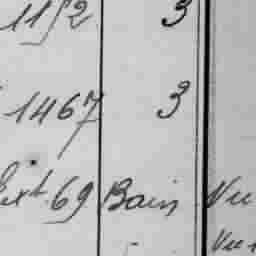 1152 3
1467 3
Ext. 69 Bain Vu
Vu